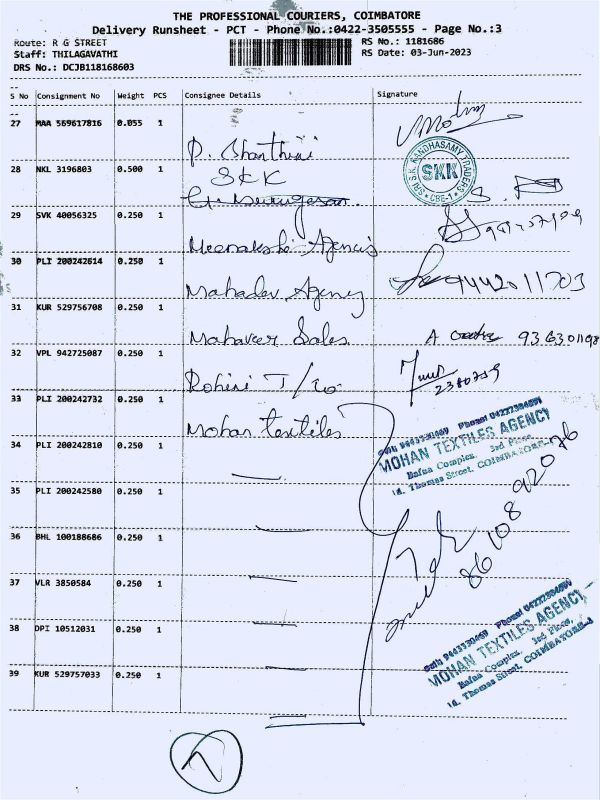 THE PROFESSIONAL COURIERS, COIMBATORE
Delivery Runsheet - PCT - Phone No.:0422-3505555 - Page No.:3
Route: R G STREET
Staff: THILAGAVATHI
DRS No.: DCJB118168603
RS No.: 1181686
RS Date: 03-Jun-2023
S No Consignment No Weight PCS Consignee Details Signature
27 MAA 569617816 0.055 1
P. Shanthini
28 NKL 3196803 0.500 1 SKK
SRI S.K. KANDHASAMY TRADERS
SKK
CBE-1
29 SVK 40056325 0.250 1
Meenakshi Agencies
30 PLI 200242614 0.250 1
Mahadev Agency 9442011703
31 KUR 529756708 0.250 1
Mahaveer Sales
32 VPL 942725087 0.250 1
Rohini T/co
33 PLI 200242732 0.250 1
Mohan textiles
Cell: 9443330469 Phone: 04222394690
MOHAN TEXTILES AGENCY
Bafna Complex, 3rd Floor,
14, Thomas Street, COIMBATORE-1
34 PLI 200242810 0.250 1
35 PLI 200242580 0.250 1
36 BHL 100188686 0.250 1
37 VLR 3850584 0.250 1
38 DPI 10512031 0.250 1
39 KUR 529757033 0.250 1
MOHAN TEXTILES AGENCY
Bafna Complex, 3rd Floor,
14, Thomas Street, COIMBATORE-1
7